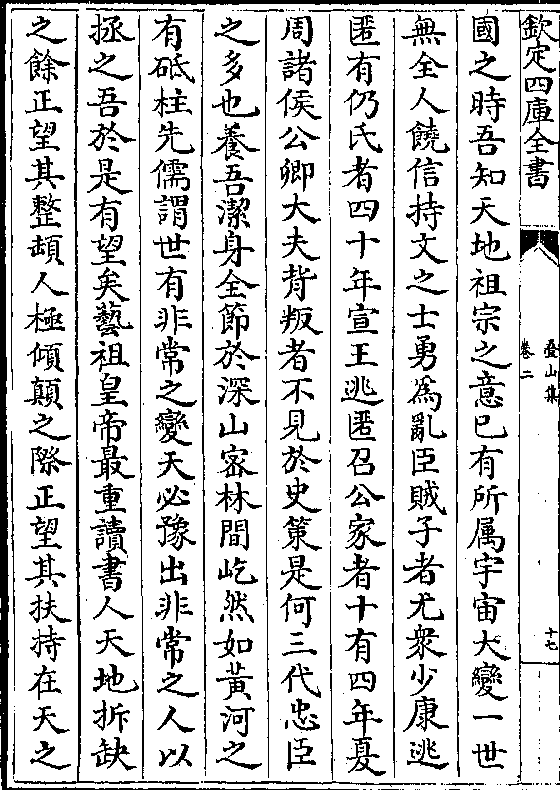 欽定四庫全書
疊山集
卷二
十七
國之時吾知天地祖宗之意已有所属宇宙大變一世
無全人饒信持文之士勇為亂臣賊子者尤衆少康逃
匿有仍氏者四十年宣王逃匿召公家者十有四年夏
周諸侯公卿大夫背叛者不見於史策是何三代忠臣
之多也養吾潔身全節於深山宻林間屹然如黄河之
有砥柱先儒謂世有非常之變天必豫出非常之人以
拯之吾於是有望矣藝祖皇帝最重讀書人天地拆缺
之餘正望其整頓人極傾顛之際正望其扶持在天之